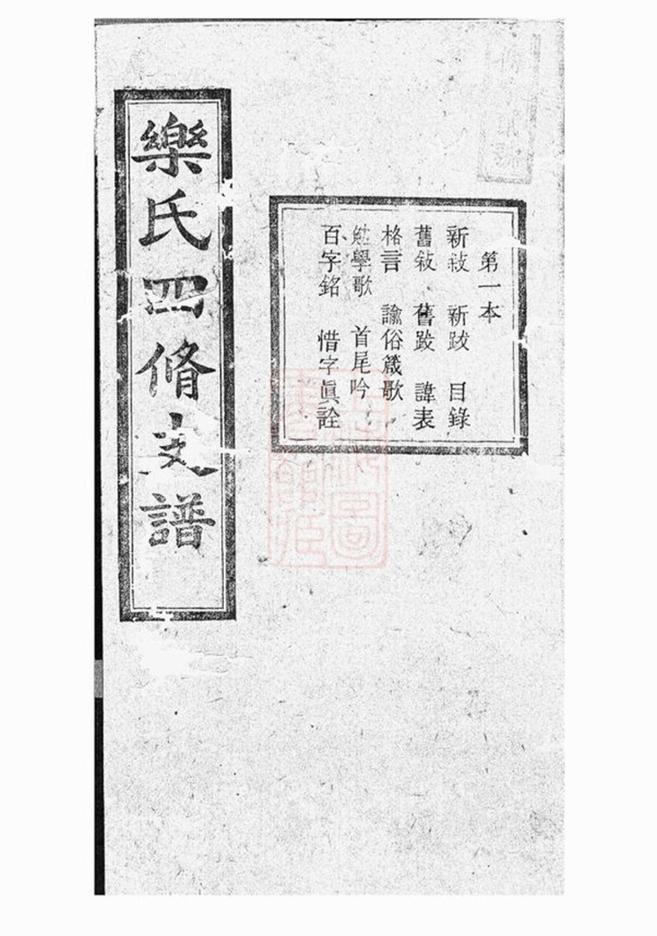 樂氏四脩支譜
第一本
新敍 新跋 目錄
舊敍 舊跋 諱表
格言 諭俗箴歌
學歌 首尾吟
百字銘 惜字眞詮